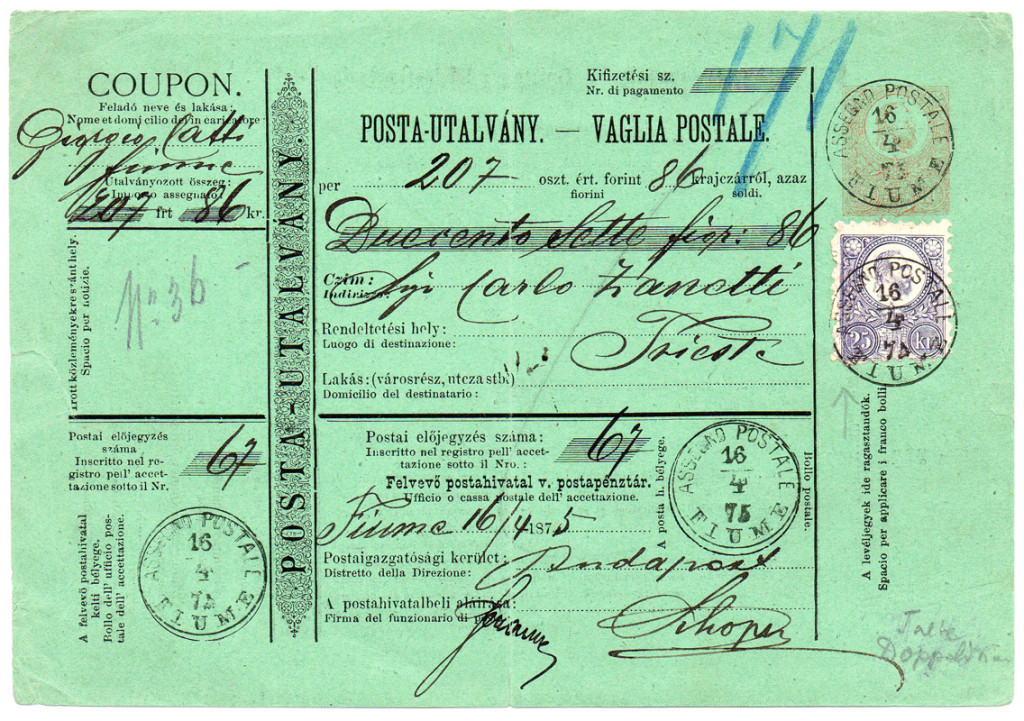 COUPON.
Feladó neve és lakása:
Nome et domicilio del'in caricatore:
Giorgio Catti
Fiume
Utalványozott összeg:
Importo assegnato:
207 frt 86 kr.
Arról közleményekre szánt hely.
Spacio per notizie.
No 36
Postai előjegyzés
száma
Inscritto nel re-
gistro pell' accet-
tazione sotto il Nr.
67
A felvevő postahivatal
kelti bélyege.
Bollo dell' ufficio pos-
tale dell' accettazione.
ASSEGNO POSTALE
16
4
75
FIUME
POSTA-UTALVÁNY.
171
Kifizetési sz.
Nr. di pagamento
POSTA-UTALVÁNY. — VAGLIA POSTALE.
per 207 oszt. ért. forint 86 krajczárról, azaz
fiorini soldi.
Duecento sette fior: 86
Czím:
Indirizzo:
Sigr Carlo Zanetti
Rendeltetési hely:
Luogo di destinazione:
Trieste
Lakás: (városrész, utcza stb.)
Domicilio del destinatario:
Postai előjegyzés száma:
Inscritto nel registro pell' accet-
tazione sotto il Nro.:
67
Felvevő postahivatal v. postapénztár.
Ufficio o cassa postale dell' accettazione.
Fiume 16/4 1875
Postaigazgatósági kerület:
Distretto della Direzione:
Budapest
A postahivatalbeli aláírása:
Firma del funzionario di
A posta h. bélyege.
Bollo postale.
ASSEGNO POSTALE
16
4
75
FIUME
ASSEGNO POSTALE
16
4
75
FIUME
25 KR
ASSEGNO POSTALE
16
4
75
FIUME
A levéljegyek ide ragasztandók.
Spacio per applicare i franco bolli